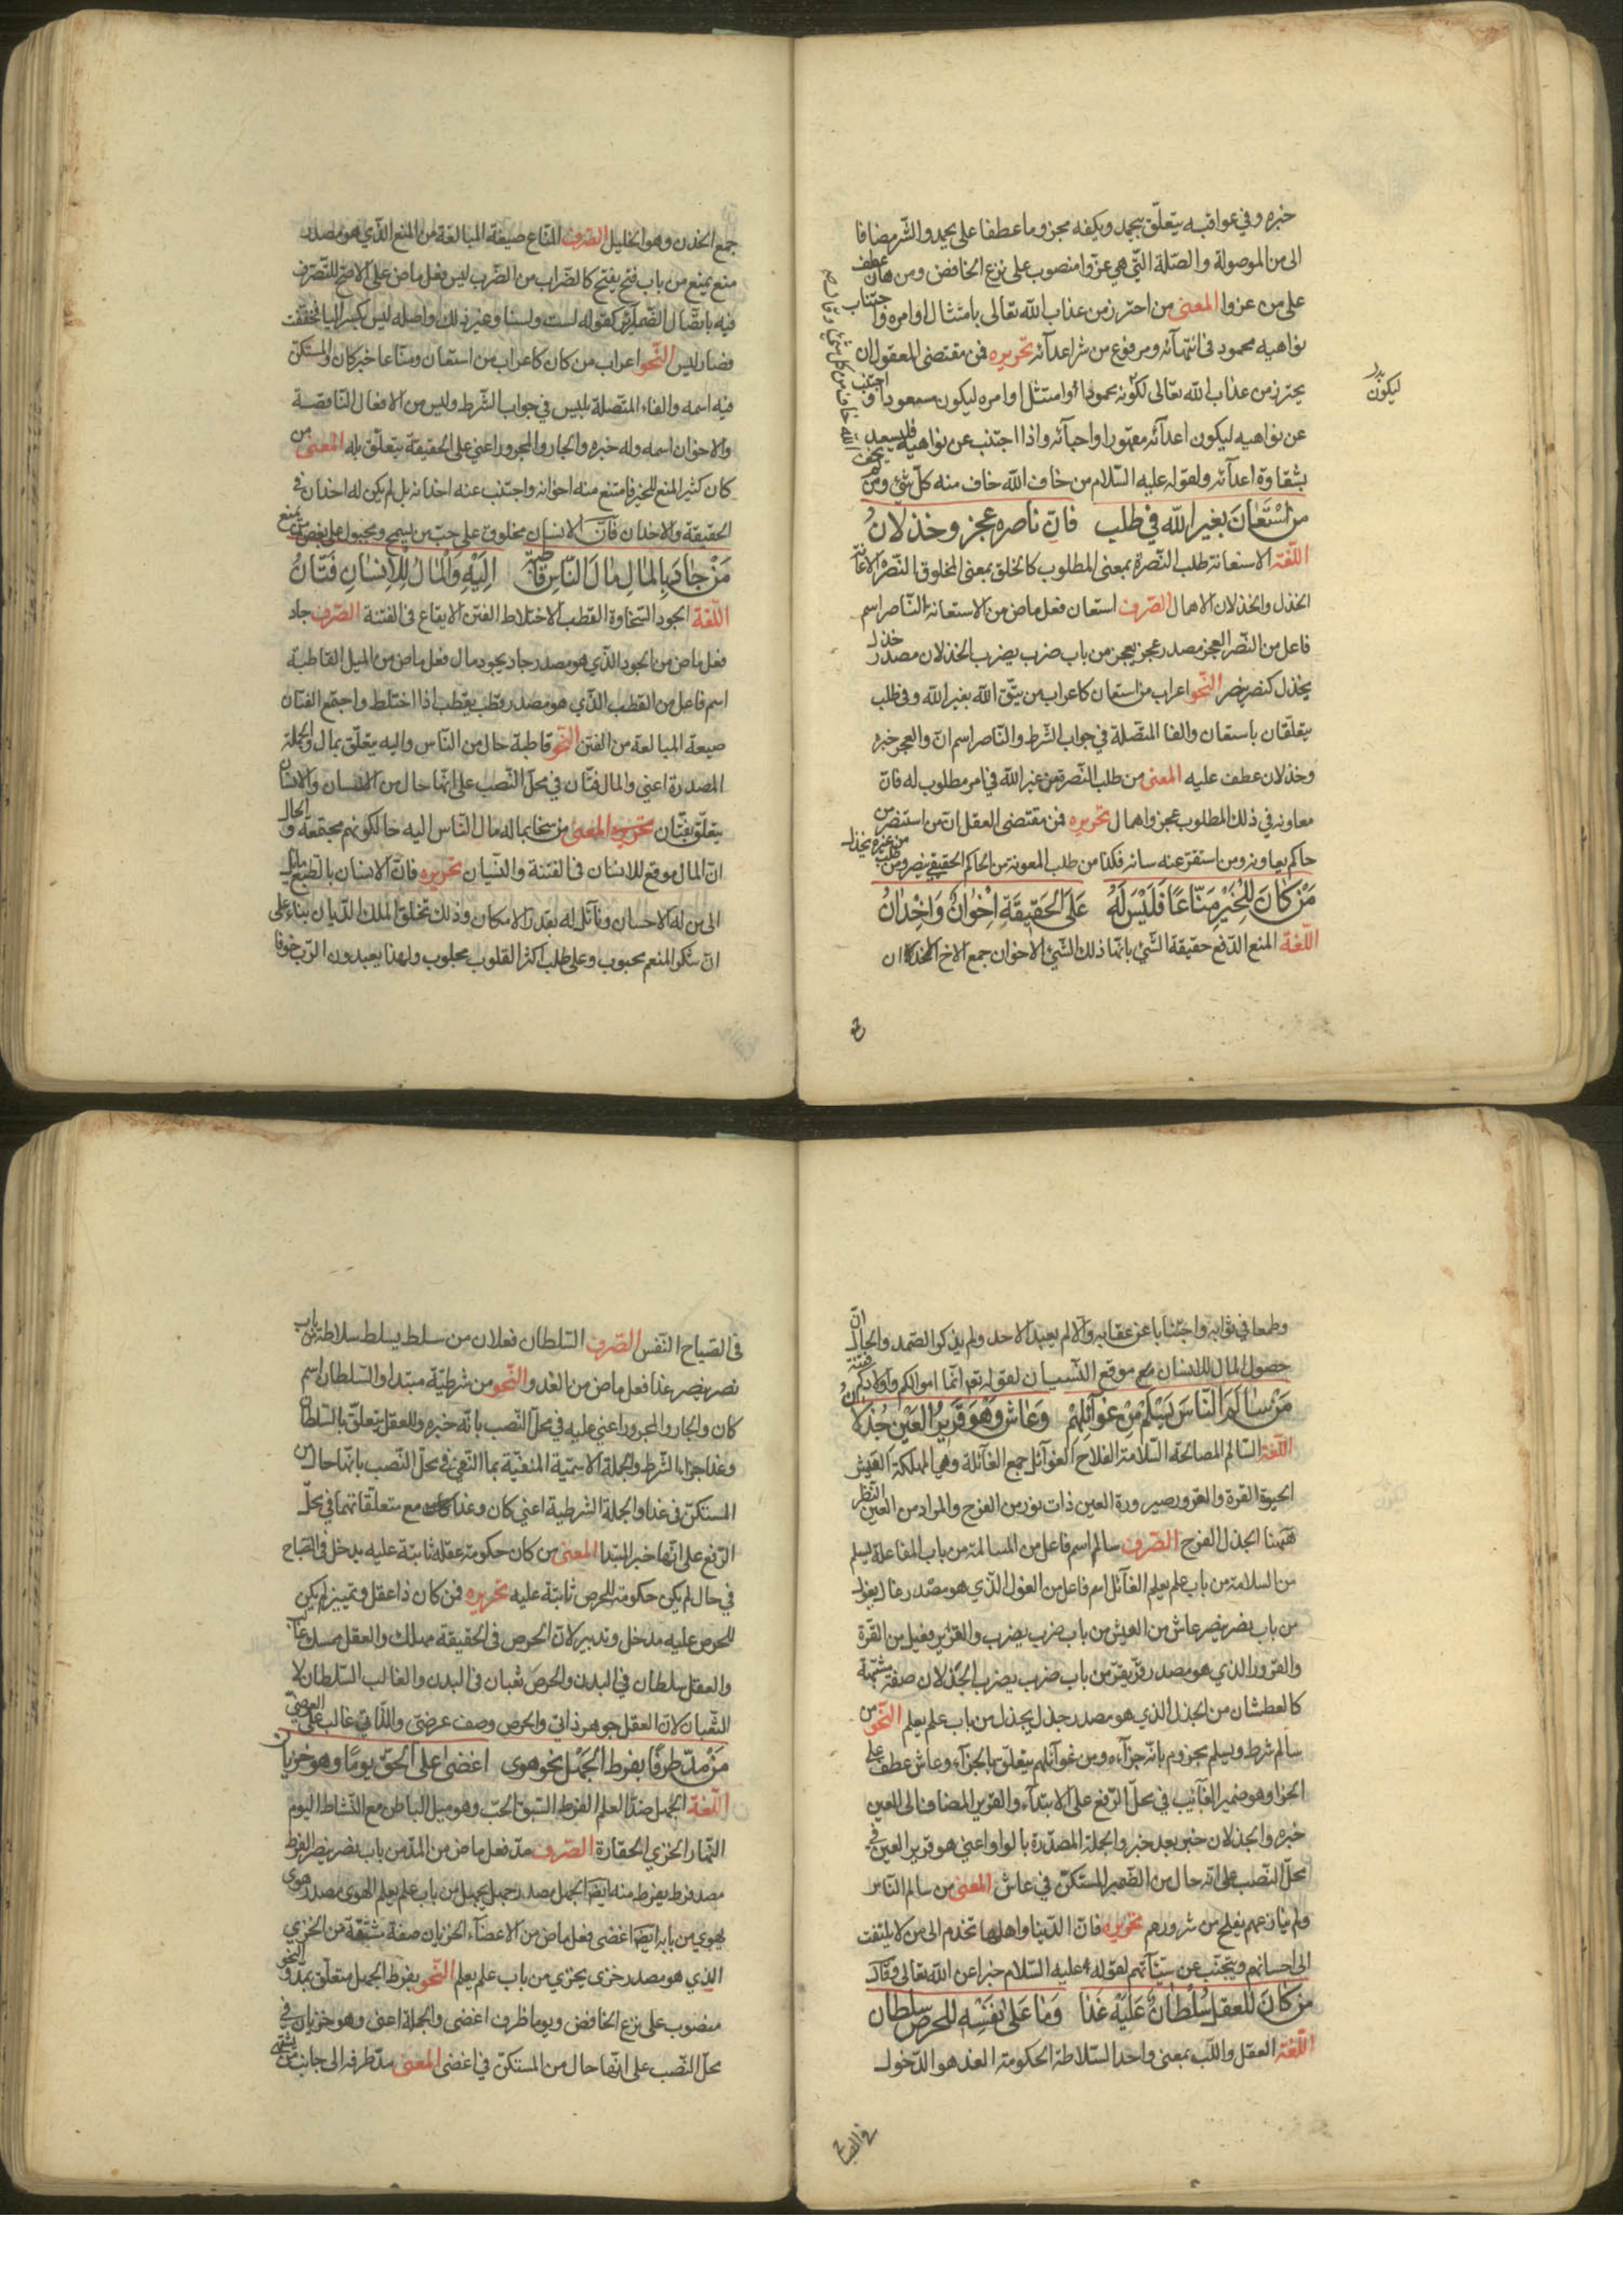 خبره وفي عواقبه يتعلّق بيحمد ويكفه مجزوما عطفا على يحمد والشّر مضافا
الى من الموصولة والصّلة التّي هي عزّوا منصوب على نزع الخافض ومن هان عطف
على من عزوا المعنى من احترز من عذاب الله تعالى بامتثال اوامره واجتناب
نواهيه محمود في انتهآئه ومرفوع من شر اعدآئه تحريره فمن مقتضى المعقول ان
يحترز من عذاب الله تعالى لكونه محمودا او امتثل اوامره ليكون مسعودا واجتنب
ليكون
عن نواهيه ليكون اعدآئه مقهورا واحبآئه واذا اجتنب عن نواهيه فليسعد
بشقاوة اعدآئه ولقوله عليه السّلام من خاف الله خاف منه كلّ شئ ومن
من اسْتَعَانَ بغير الله في طلب فانّ ناصره عجز وخذلانُ
اللّغة الاستعانة طلب النّصرة بمعنى المطلوب كالخلق بمعنى المخلوق النّصر الاعانة
الخذل والخذلان الاهمال الصّرف استعان فعل ماض من الاستعانة النّاصر اسم
فاعل من النّصر العجز مصدر عجز يعجز من باب ضرب يضرب الخذلان مصدر خذل
يخذل كنصر ينصر النّحو اعراب من استعان كاعراب من يتّق الله بغير الله وفي طلب
يتعلّقان باستعان والفا المتّصلة في جواب الشّرط والنّاصر اسم انّ والعجز خبره
وخذلان عطف عليه المعنى من طلب النّصرة من غير الله في امر مطلوب له فانّ
معاونه في ذلك المطلوب عجز واهمال تحريره فمن مقتضى العقل انّ من استنصر من
حاكم يعاونه ومن استقرّ عنه سائر فكذا من طلب المعونة من الحاكم الحقيقي ينصر ومن طلب من غيره يخذل
مَنْ كَانَ لِلْخَيْرِ مَنّاعًا فَلَيْسَ لَهُ عَلَى الحَقيقَةِ اِخْوَانٌ وَاَخْدَانُ
اللّغة المنع الدّفع حقيقة الشّئ بانّها ذلك الشّئ الاخوان جمع الاخ الاخدان
جمع الخدن وهو الخليل الصّرف المنّاع صيغة المبالغة من المنع الّذي هو مصدر
منع يمنع من باب فتح يفتح كالضّراب من الضّرب ليس فعل ماض على الاصحّ للتّصرّف
فيه باتّصال الضّمآئر كقوله لست ولسنا وغير ذلك واصله ليس بكسر اليا فخفّفت
فصار ليس النّحو اعراب من كان كاعراب من استعان ومنّاعا خبر كان والمستكنّ
فيه اسمه والفاء المتّصلة بليس في جواب الشّرط وليس من الافعال النّاقصة
والاخوان اسمه وله خبره والجار والمجرور اعني على الحقيقة يتعلّق بله المعنى من
كان كثير المنع للخير فامتنع منه اخوانه واجتنب عنه اخدانه بل لم يكن له اخدان في
الحقيقة والاخدان فانّ الانسان مخلوق على حبّ من يسمح ومجبول على بغض من يمنع
مَنْ جَادَ بِالمَالِ مَالَ النّاسُ قاطِبَةً اِلَيْهِ وَالْمَالُ لِلْاِنْسَانِ فَتّانُ
اللّغة الجود السّخاوة القطب الاختلاط الفتن الايقاع في الفتنة الصّرف جاد
فعل ماض من الجود الّذي هو مصدر جاد يجود مال فعل ماض من الميل القاطبة
اسم فاعل من القطب الّذي هو مصدر قطب يقطب اذا اختلط واجتمع الفتّان
صيغة المبالغة من الفتن النّحو قاطبة حال من النّاس واليه يتعلّق بمال والجملة
المصدرة اعني والمال فتّان في محلّ النّصب على انّها حال من الانسان وللانسان
يتعلّق بفتّان المعنى من سخا بماله مال النّاس اليه حالكونهم مجتمعة والحال
انّ المال موقع للانسان في الفتنة والنّسيان تحريره فانّ الانسان بالطّبع مائل
الى من له الاحسان ومآئل له بقدر الامكان وذلك تخلّق الملك الدّيان بناء على
انّ شكر المنعم محبوب وعلى طلب اكثر القلوب مجلوب ولهذا يعبدون الرّب خوفا
وطمعا في ثوابه واجتنابا عن عقابه والّا لم يعبد الاحد ولم يذكروا الصّمد والحال انّ
حصول المال للانسان موقع النّسيان لقوله تعم انّما اموالكم واولادكم فتنة
مَنْ سَالَمَ النّاسَ يَسْلَمْ مِنْ غَوآئِلِهِمْ وَعَاشَ وَهْوَ قَرِيرُ العَيْنِ جُذْلَانُ
اللّغة السّالم المصالحة السّلامة الفلاح الغوآئل جمع الغآئلة وهي المهلكة العيش
الحيوة القرّة والقرور صيرورة العين ذات نور من الفرح والمراد من العين النّظر
ههنا الجذل الفرح الصّرف سالم اسم فاعل من المسالمة من باب المفاعلة يسلم
من السلامة من باب علم يعلم الغآئل اسم فاعل من الغول الّذي هو مصدر غال يغول
من باب نصر ينصر عاش من العيش من باب ضرب يضرب والقرير فعيل من القرّة
والقرور الذي هو مصدر قرّ يقرّ من باب ضرب يضرب الجذلان صفة مشبّهة
كالعطشان من الجذل الذي هو مصدر جذل يجذل من باب علم يعلم النّحو من
سالم شرط ويسلم مجزوم بانّه جزآءه ومن غوآئلهم يتعلّق بالجزآء وعاش عطف على
الجزا وهو ضمير الغآئب في محلّ الرّفع على الابتدآء والقرير المضاف الى العين
خبره والجذلان خبر بعد خبر والجملة المصدّرة بالواو اعني هو قرير العين في
محلّ النّصب على انّه حال من الضّمير المستكنّ في عاش المعنى من سالم النّاس
ولم ينازعهم يفلح من شرورهم تحريره فانّ الدّنيا واهلها تخدم الى من لا يلتفت
الى احسانهم ويتجنّب عن سيّئآتهم لقوله عليه السّلام خبرا عن الله تعالى وقال
من كَانَ للعقل سُلْطَانٌ عَلَيْهِ غَدَا وَمَا عَلَى نَفْسِهِ للحرص سلطان
اللّغة العقل واللّب بمعنى واحد السّلاطة الحكومة الغد هو الدّخول
في الصباح
في الصّباح النّفس الصّرف السّلطان فعلان من سلط يسلط سلاطة من باب
نصر ينصر غدا فعل ماض من الغدو النّحو من شرطيّة مبتدا والسّلطان اسم
كان والجار والمجرور اعني عليه في محلّ النّصب بانّه خبره وللعقل يتعلّق بالسّلطان
وغدا جزاء الشّرط والجملة الاسميّة المنفيّة بما النّفي في محلّ النّصب بانّها حال من
المستكنّ في غدا والجملة الشرطية اعني كان وغدا مع متعلّقاتهما في محلّ
الرّفع على انّها خبر المبتدا المعنى من كان حكومة عقله ثابتة عليه يدخل في الصّباح
في حال لم يكن حكومة للحرص ثابتة عليه تحريره فمن كان ذا عقل وتمييز لم يكن
للحرص عليه مدخل وتدبير لانّ الحرص في الحقيقة مهلك والعقل
والعقل سلطان في البدن والحرص ثعبان في البدن والغالب السّلطان لا
الثّعبان لانّ العقل جوهر ذاتي والحرص وصف عرضي والذّاتي غالب على العرضيّ
مَنْ مدّ طرفًا بفرط الجَهْل نحو هوى اغضى على الحقّ يومًا وهو خزيان
اللّغة الجهل ضدّ العلم الفرط السّبق الحبّ وهو ميل الباطن مع النّشاط اليوم
النّهار الخزي الحقارة الصّرف مدّ فعل ماض من المدّ من باب نصر ينصر الفرط
مصدر فرط يفرط منه ايضا الجهل مصدر جهل يجهل من باب علم يعلم الهوى مصدر هوى
يهوي من بابه ايضا اغضى فعل ماض من الاغضآء الخزيان صفة مشبّهة من الخزي
الذي هو مصدر خزى يخزي من باب علم يعلم النّحو بفرط الجهل متعلّق بمدّ والنحو
منصوب على نزع الخافض ويوما ظرف اغضى والجملة اعني وهو خزيان في
محلّ النّصب على انّها حال من المستكنّ في اغضى المعنى مدّ طرفه الى جانب